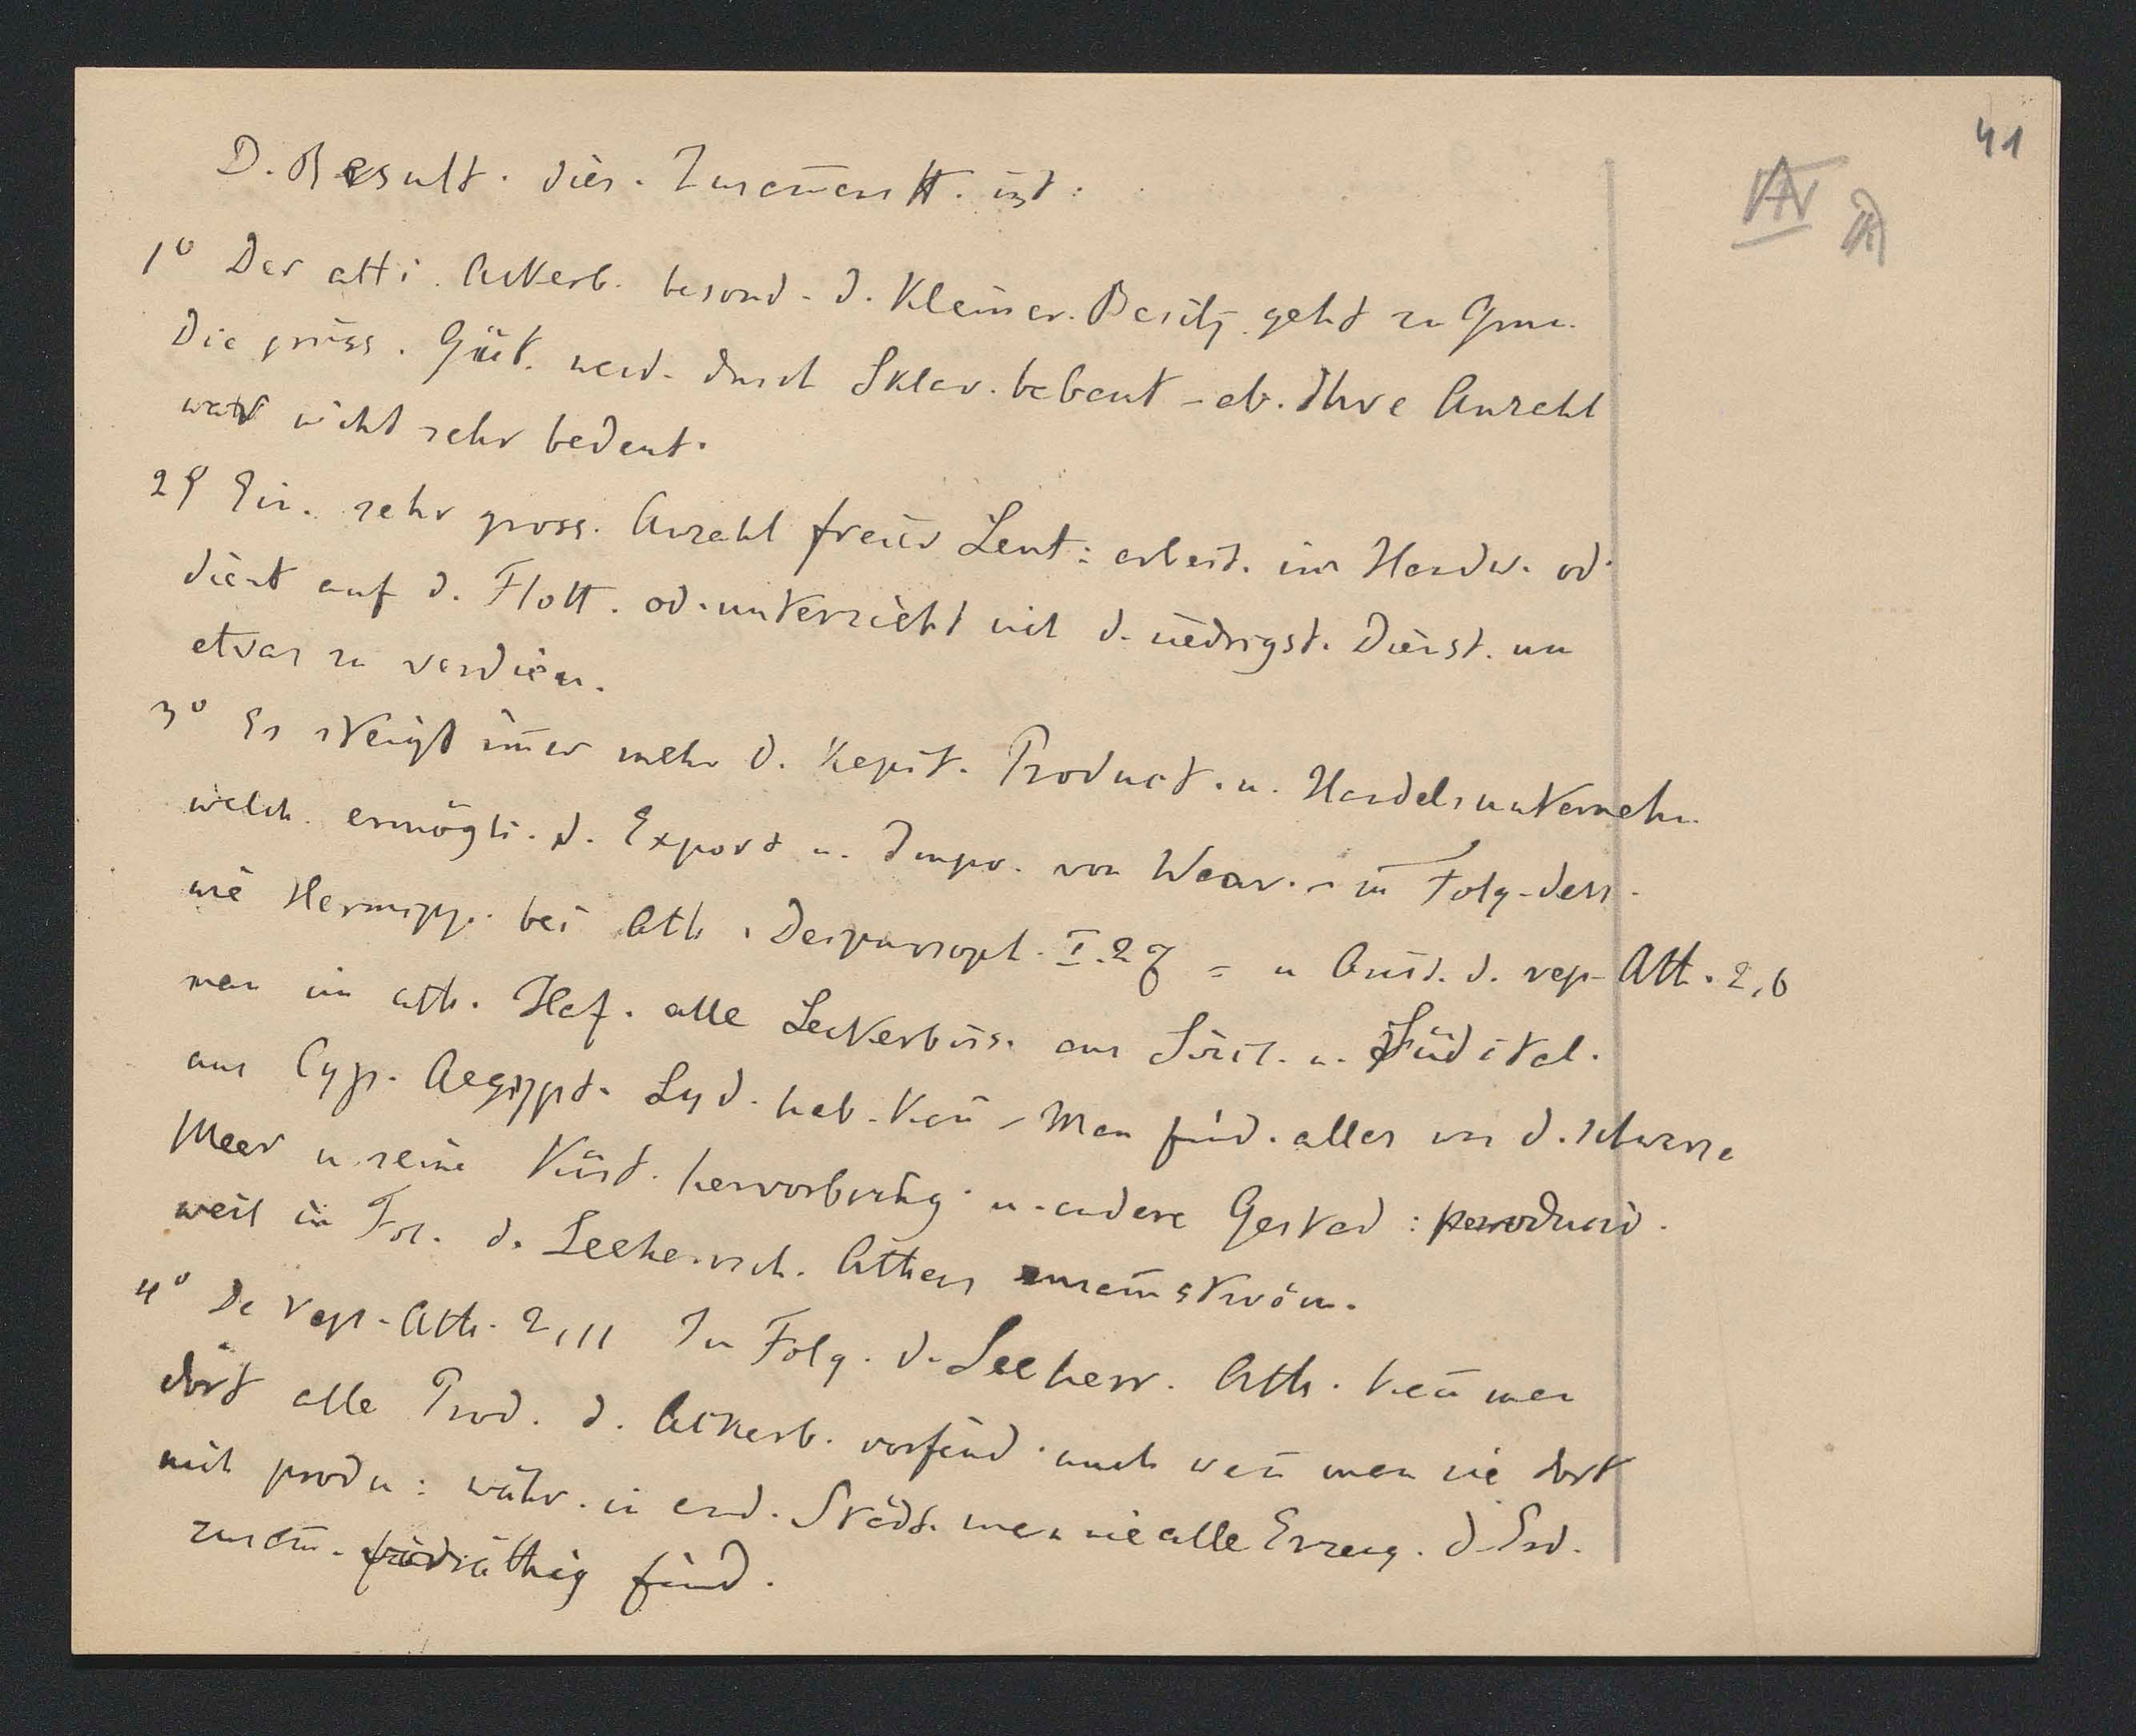 41
D. Result. dies. Zusam̄enst. ist:
1° Der atti. Ackerb. besond. d. Kleiner. Besitz. geht zu Grun.
Die gröss. Güt. werd. durch Sklav. bebaut - ab. Ihre Anzahl
war nicht sehr bedeut.
2° Ein. sehr gross. Anzahl freier Leut: arbeit. im Handw. od.
dient auf d. Flott. od. unterzieht sich d. niedrigst. Dienst. um
etwas zu verdien.
3° Es steigt im̄er mehr d. Kapit. Product. u. Handelsunternehm.
welch. ermögli. d. Export u. Impor. von Waar. - in Folg. dess.
wie Hermipp. bei Ath. Deipnosoph. I. 27 = u Aust. d. rep. Ath. 2,6
man im ath. Haf. alle Leckerbiss. aus Sicil. u. Südital.
aus Cyp. Aegypt. Lyd. hab. kan̄ - Man find. alles was d. schwarze
Meer u. seine Küst. hervorbring. u. andere Gestad: producir.
weil in Fol. d. Seeherrsch. Athens zusam̄ström.
4° De rep. Ath. 2,11 In Folg. d. Seeherr. Ath. kan̄ man
dort alle Prod. d. Ackerb. vorfind. auch wen̄ man sie dort
nich produ: währ. in and. Städt. man nie alle Erzeug. d. Erd.
zusam̄. vorräthig find.